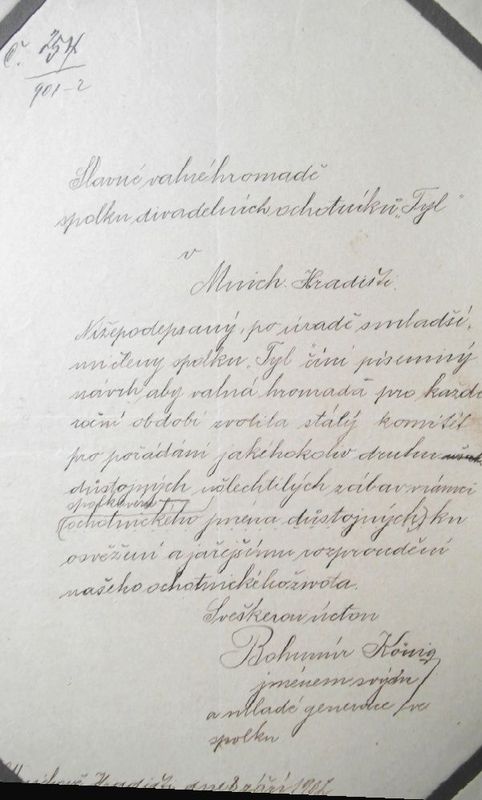 Č. 254
901-2
Slavné valné hromadě
spolku divadelních ochotníků „Tyl"
v
Mnich. Hradišti.
Nížepodepsaný, po úradě s mladší,
mi členy spolku „Tyl" činí písemný
návrh aby valná hromada pro každé
roční období zvolila stálý komitét
pro pořádání jakéhokoliv druhu
důstojných ušlechtilých zábav v rámci
spolkového
(ochotnického jména důstojných) ku
osvěžení a jařejšímu rozproudění
našeho ochotnického života.
S veškerou úctou
Bohumír König
jménem svým
a mladé generace ve
spolku
Hradišti, dne 8 září